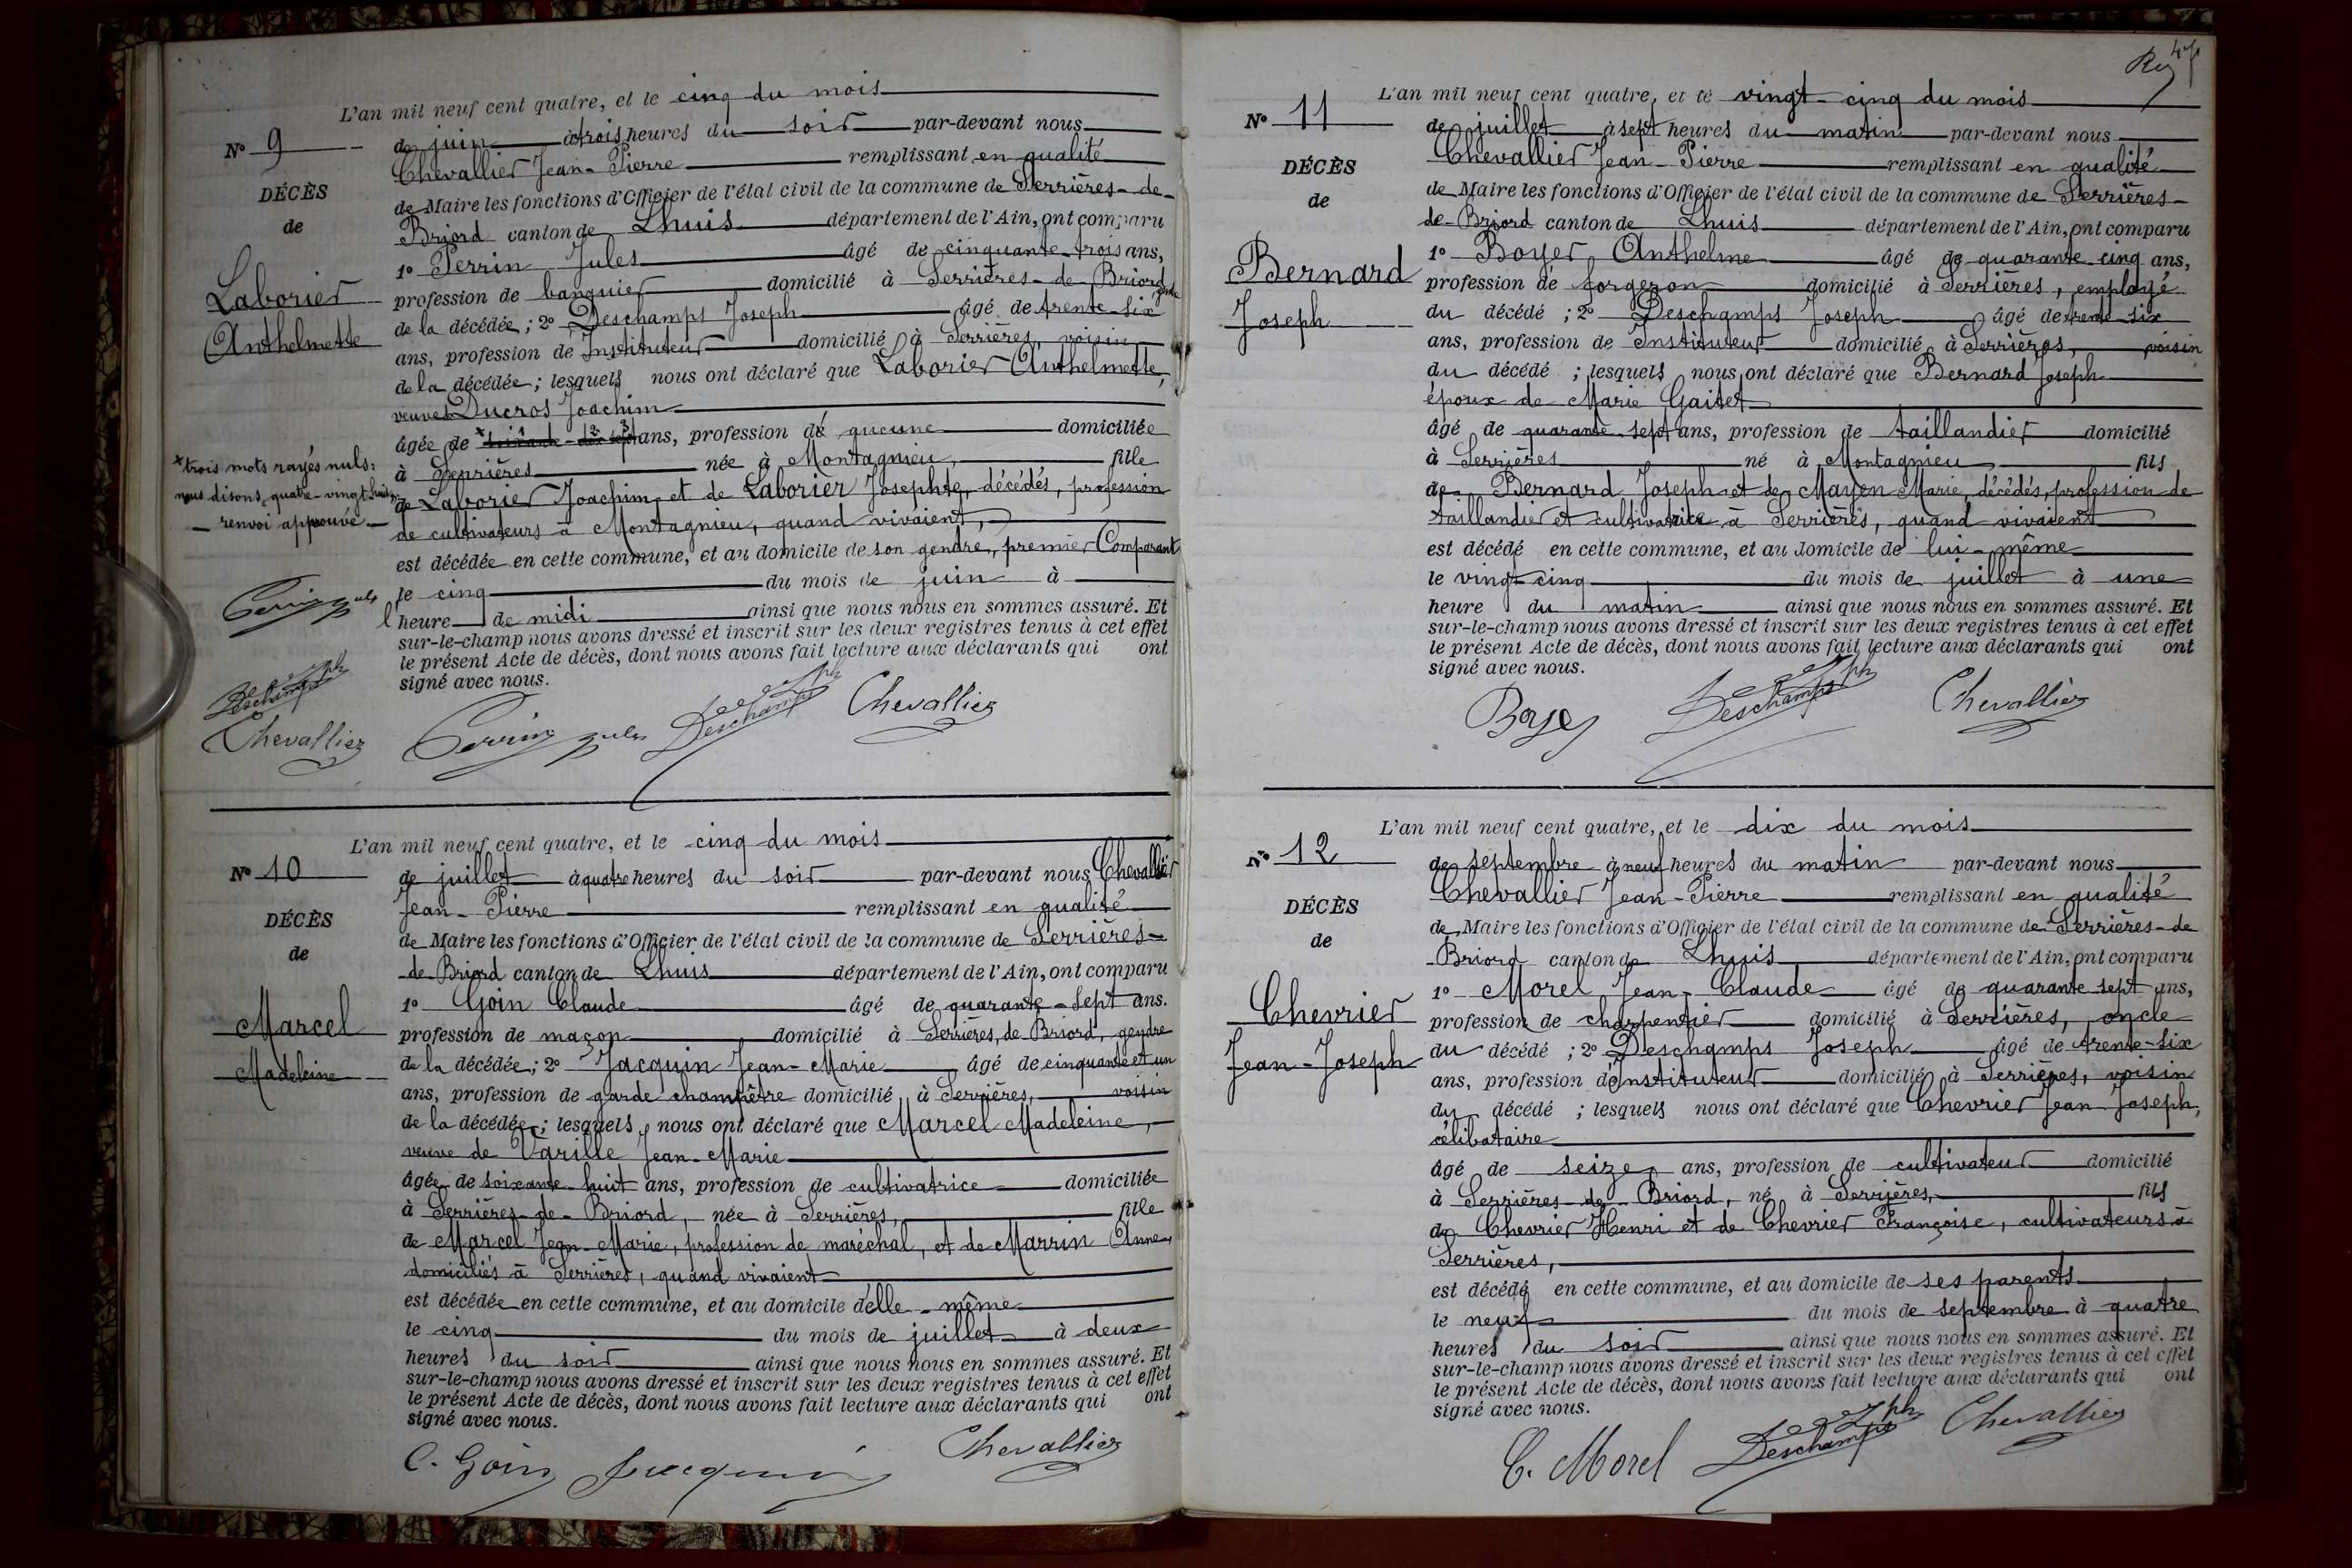 L'an mil neuf cent quatre, et le cinq du mois
N° 9
de juin à trois heures du soir par-devant nous
Chevallier Jean-Pierre remplissant en qualité
DÉCÈS
de Maire les fonctions d'Officier de l'état civil de la commune de Serrières-de-
de
Briord canton de Lhuis département de l'Ain, ont comparu
1° Perrin Jules âgé de cinquante-trois ans,
Laborier
profession de banquier domicilié à Serrières-de-Briord, gendre
de la décédée; 2° Deschamps Joseph âgé de trente-six
Anthelmette
ans, profession de Instituteur domicilié à Serrières, voisin
de la décédée; lesquels nous ont déclaré que Laborier Anthelmette,
veuve Ducros Joachim
âgée de * soixante-dix-sept ans, profession de aucune domiciliée
* trois mots rayés nuls:
nous disons quatre-vingt huit
renvoi approuvé.
à Serrières née à Montagnieu, fille
de Laborier Joachim, et de Laborier Josephte, décédés, profession
de cultivateurs à Montagnieu, quand vivaient,
est décédée en cette commune, et au domicile de son gendre, premier Comparant
le cinq du mois de juin à
l'heure de midi ainsi que nous nous en sommes assuré. Et
sur-le-champ nous avons dressé et inscrit sur les deux registres tenus à cet effet
le présent Acte de décès, dont nous avons fait lecture aux déclarants qui ont
signé avec nous.
Perrin Jules
Deschamps Jph
Chevallier
Perrin Jules Deschamps Jph Chevallier
L'an mil neuf cent quatre, et le cinq du mois
N° 10
de juillet à quatre heures du soir par-devant nous Chevallier
Jean-Pierre remplissant en qualité
DÉCÈS
de Maire les fonctions d'Officier de l'état civil de la commune de Serrières-
de
-de-Briord canton de Lhuis département de l'Ain, ont comparu
1° Goin Claude âgé de quarante-sept ans.
Marcel
profession de maçon domicilié à Serrières, de Briord, gendre
de la décédée; 2° Jacquin Jean-Marie âgé de cinquante et un
Madeleine
ans, profession de garde champêtre domicilié à Serrières, voisin
de la décédée; lesquels nous ont déclaré que Marcel Madeleine,
veuve de Varille Jean-Marie
âgée de soixante-huit ans, profession de cultivatrice domiciliée
à Serrières-de-Briord, née à Serrières, fille
de Marcel Jean-Marie, profession de maréchal, et de Marrin Anne,
domiciliés à Serrières, quand vivaient
est décédée en cette commune, et au domicile d'elle-même
le cinq du mois de juillet à deux
heures du soir ainsi que nous nous en sommes assuré. Et
sur-le-champ nous avons dressé et inscrit sur les deux registres tenus à cet effet
le présent Acte de décès, dont nous avons fait lecture aux déclarants qui ont
signé avec nous.
C. Goin Jacquin Chevallier
47
L'an mil neuf cent quatre, et le vingt-cinq du mois
N° 11
de juillet à sept heures du matin par-devant nous
Chevallier Jean-Pierre remplissant en qualité
DÉCÈS
de Maire les fonctions d'Officier de l'état civil de la commune de Serrières-
de
de-Briord canton de Lhuis département de l'Ain, ont comparu
1° Boyer Anthelme âgé de quarante cinq ans,
Bernard
profession de forgeron domicilié à Serrières, employé
du décédé; 2° Deschamps Joseph âgé de trente-six
Joseph
ans, profession de Instituteur domicilié à Serrières, voisin
du décédé; lesquels nous ont déclaré que Bernard Joseph
époux de Marie Gaitet
âgé de quarante-sept ans, profession de taillandier domicilié
à Serrières né à Montagnieu, fils
de Bernard Joseph et de Mayen Marie, décédés, profession de
taillandier et cultivatrice à Serrières, quand vivaient
est décédé en cette commune, et au domicile de lui-même
le vingt-cinq du mois de juillet à une
heure du matin ainsi que nous nous en sommes assuré. Et
sur-le-champ nous avons dressé et inscrit sur les deux registres tenus à cet effet
le présent Acte de décès, dont nous avons fait lecture aux déclarants qui ont
signé avec nous.
Boyer Deschamps Jph Chevallier
L'an mil neuf cent quatre, et le dix du mois
N° 12
de septembre à neuf heures du matin par-devant nous
Chevallier Jean-Pierre remplissant en qualité
DÉCÈS
de Maire les fonctions d'Officier de l'état civil de la commune de Serrières-de
de
-Briord canton de Lhuis département de l'Ain, ont comparu
1° Morel Jean-Claude âgé de quarante sept ans,
Chevrier
profession de charpentier domicilié à Serrières, oncle
du décédé; 2° Deschamps Joseph âgé de trente-six
Jean-Joseph
ans, profession d'Instituteur domicilié à Serrières, voisin
du décédé; lesquels nous ont déclaré que Chevrier Jean-Joseph,
célibataire
âgé de seize ans, profession de cultivateur domicilié
à Serrières-de-Briord, né à Serrières, fils
de Chevrier Henri et de Chevrier Françoise, cultivateurs à
Serrières,
est décédé en cette commune, et au domicile de ses parents
le neuf du mois de septembre à quatre
heures du soir ainsi que nous nous en sommes assuré. Et
sur-le-champ nous avons dressé et inscrit sur les deux registres tenus à cet effet
le présent Acte de décès, dont nous avons fait lecture aux déclarants qui ont
signé avec nous.
C. Morel Deschamps Jph Chevallier